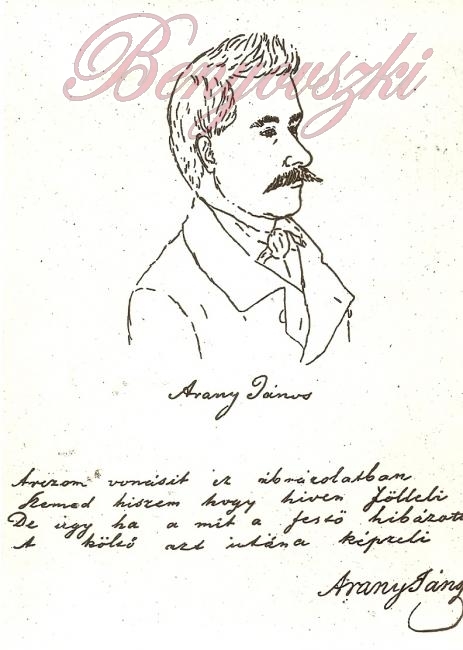 Benyovszki
Arany János
Arczom vonásit ez ábrázolatban
Szemed hiszem hogy hiven fölleli
De úgy ha a mit a festő hibázott
A költő azt utána képzeli
Arany János